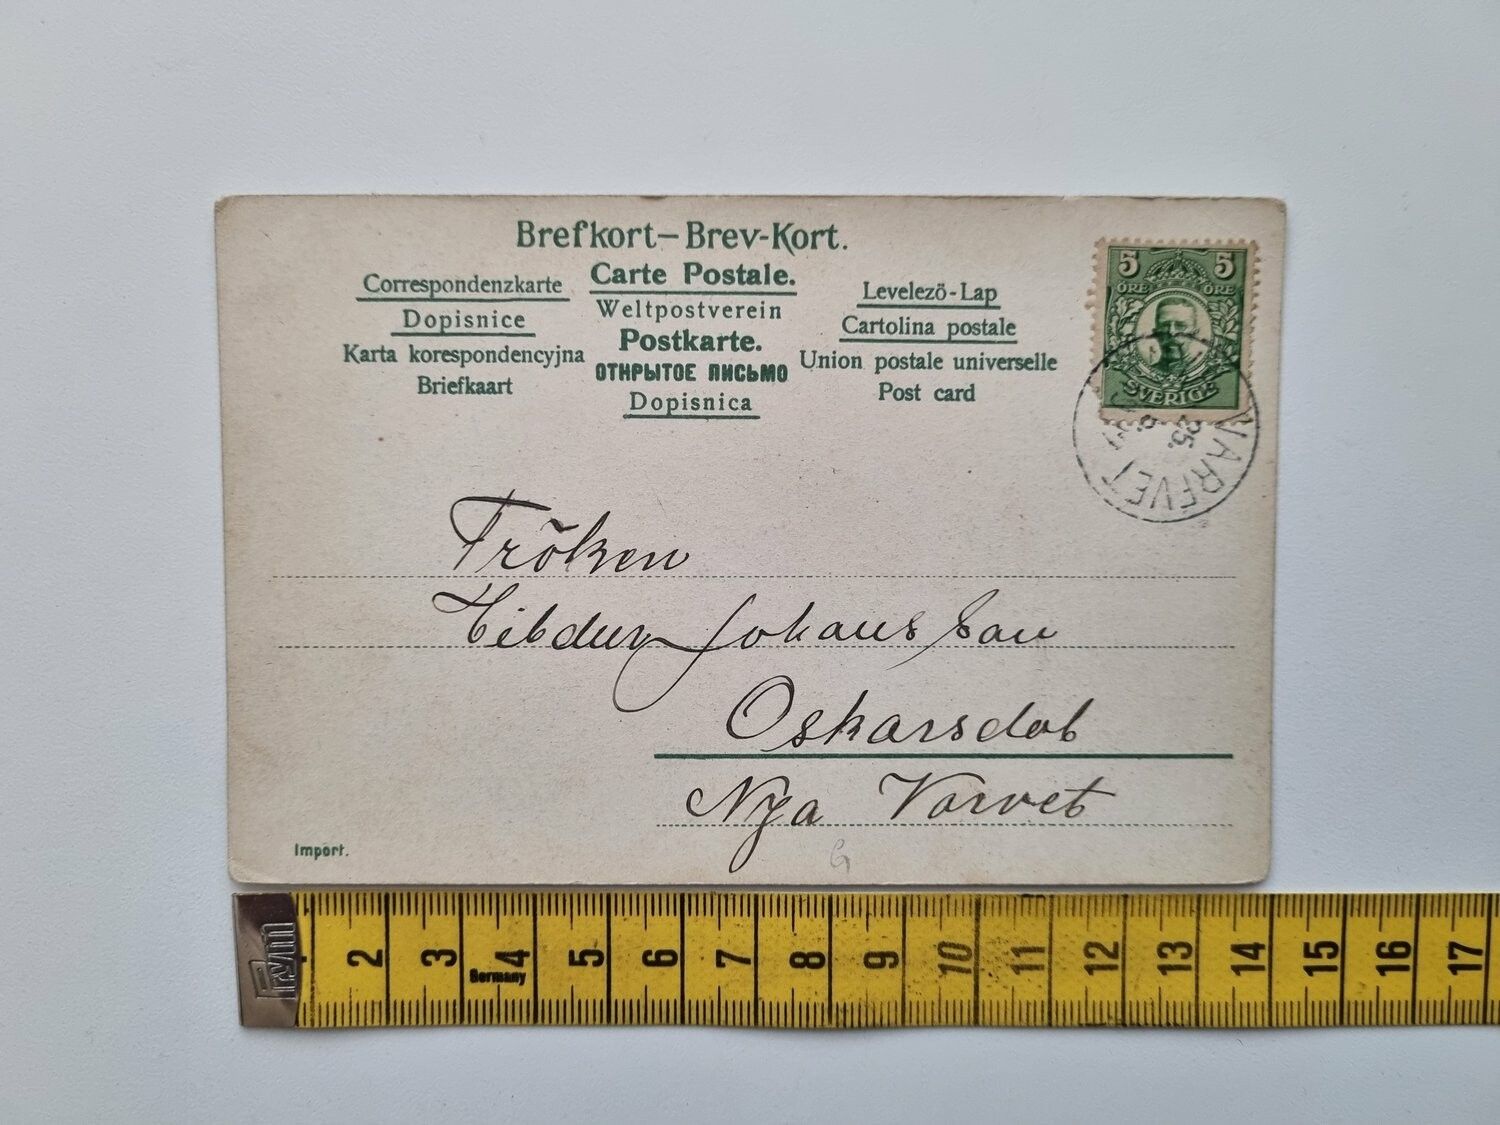 Brefkort–Brev-Kort.
Carte Postale.
Weltpostverein
Postkarte.
ОТКРЫТОЕ ПИСЬМО
Dopisnica
Correspondenzkarte
Dopisnice
Karta korespondencyjna
Briefkaart
Levelező-Lap
Cartolina postale
Union postale universelle
Post card
5 5
ÖRE ÖRE
SVERIGE
VARFVET
25.
Fröken
Hildur Johansson
Oskarsdal
Nya Varvet
G
Import.
Prym
2 3 4 5 6 7 8 9 10 11 12 13 14 15 16 17
Germany